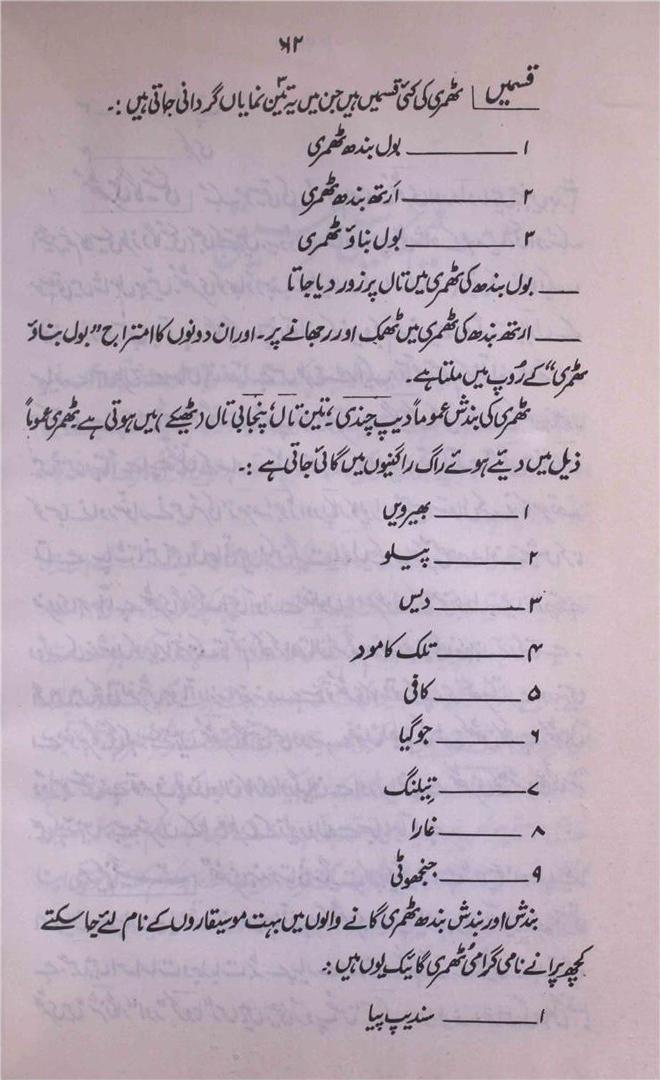 ۶۲
قسمیں ٹھمری کی کئی قسمیں ہیں جن میں یہ تین۳ نمایاں گردانی جاتی ہیں :۔
۱ ــــــــ بول بندھ ٹھمری
۲ ــــــــ اَرتھ بندھ ٹھمری
۳ ــــــــ بول بناؤ ٹھمری
ــــ بول بندھ کی ٹھمری میں تال پر زور دیا جاتا
ــــ ارتھ بندھ کی ٹھمری میں ٹھمک اور رجھانے پر۔ اور ان دونوں کا امتزاج "بول بناؤ
ٹھمری" کے رُوپ میں ملتا ہے۔
ٹھمری کی بندش عموماً دیپ چندی، تین تال، پنجابی تال (ٹھیکے) میں ہوتی ہے۔ ٹھمری عموماً
ذیل میں دیئے ہوئے راگ راگنیوں میں گائی جاتی ہے :۔
۱ ــــــــ بھیرویں
۲ ــــــــ پیلو
۳ ــــــــ دیس
۴ ــــــــ تلک کامود
۵ ــــــــ کافی
۶ ــــــــ جوگیا
۷ ــــــــ تِلنگ
۸ ــــــــ غارا
۹ ــــــــ جنجھوٹی
بندش اور بندش بندھ ٹھمری گانے والوں میں بہت موسیقاروں کے نام لئے جا سکتے
کچھ پرانے نامی گرامی ٹھمری گائیک یوں ہیں :۔
۱ ــــــــ سندیپ پیا